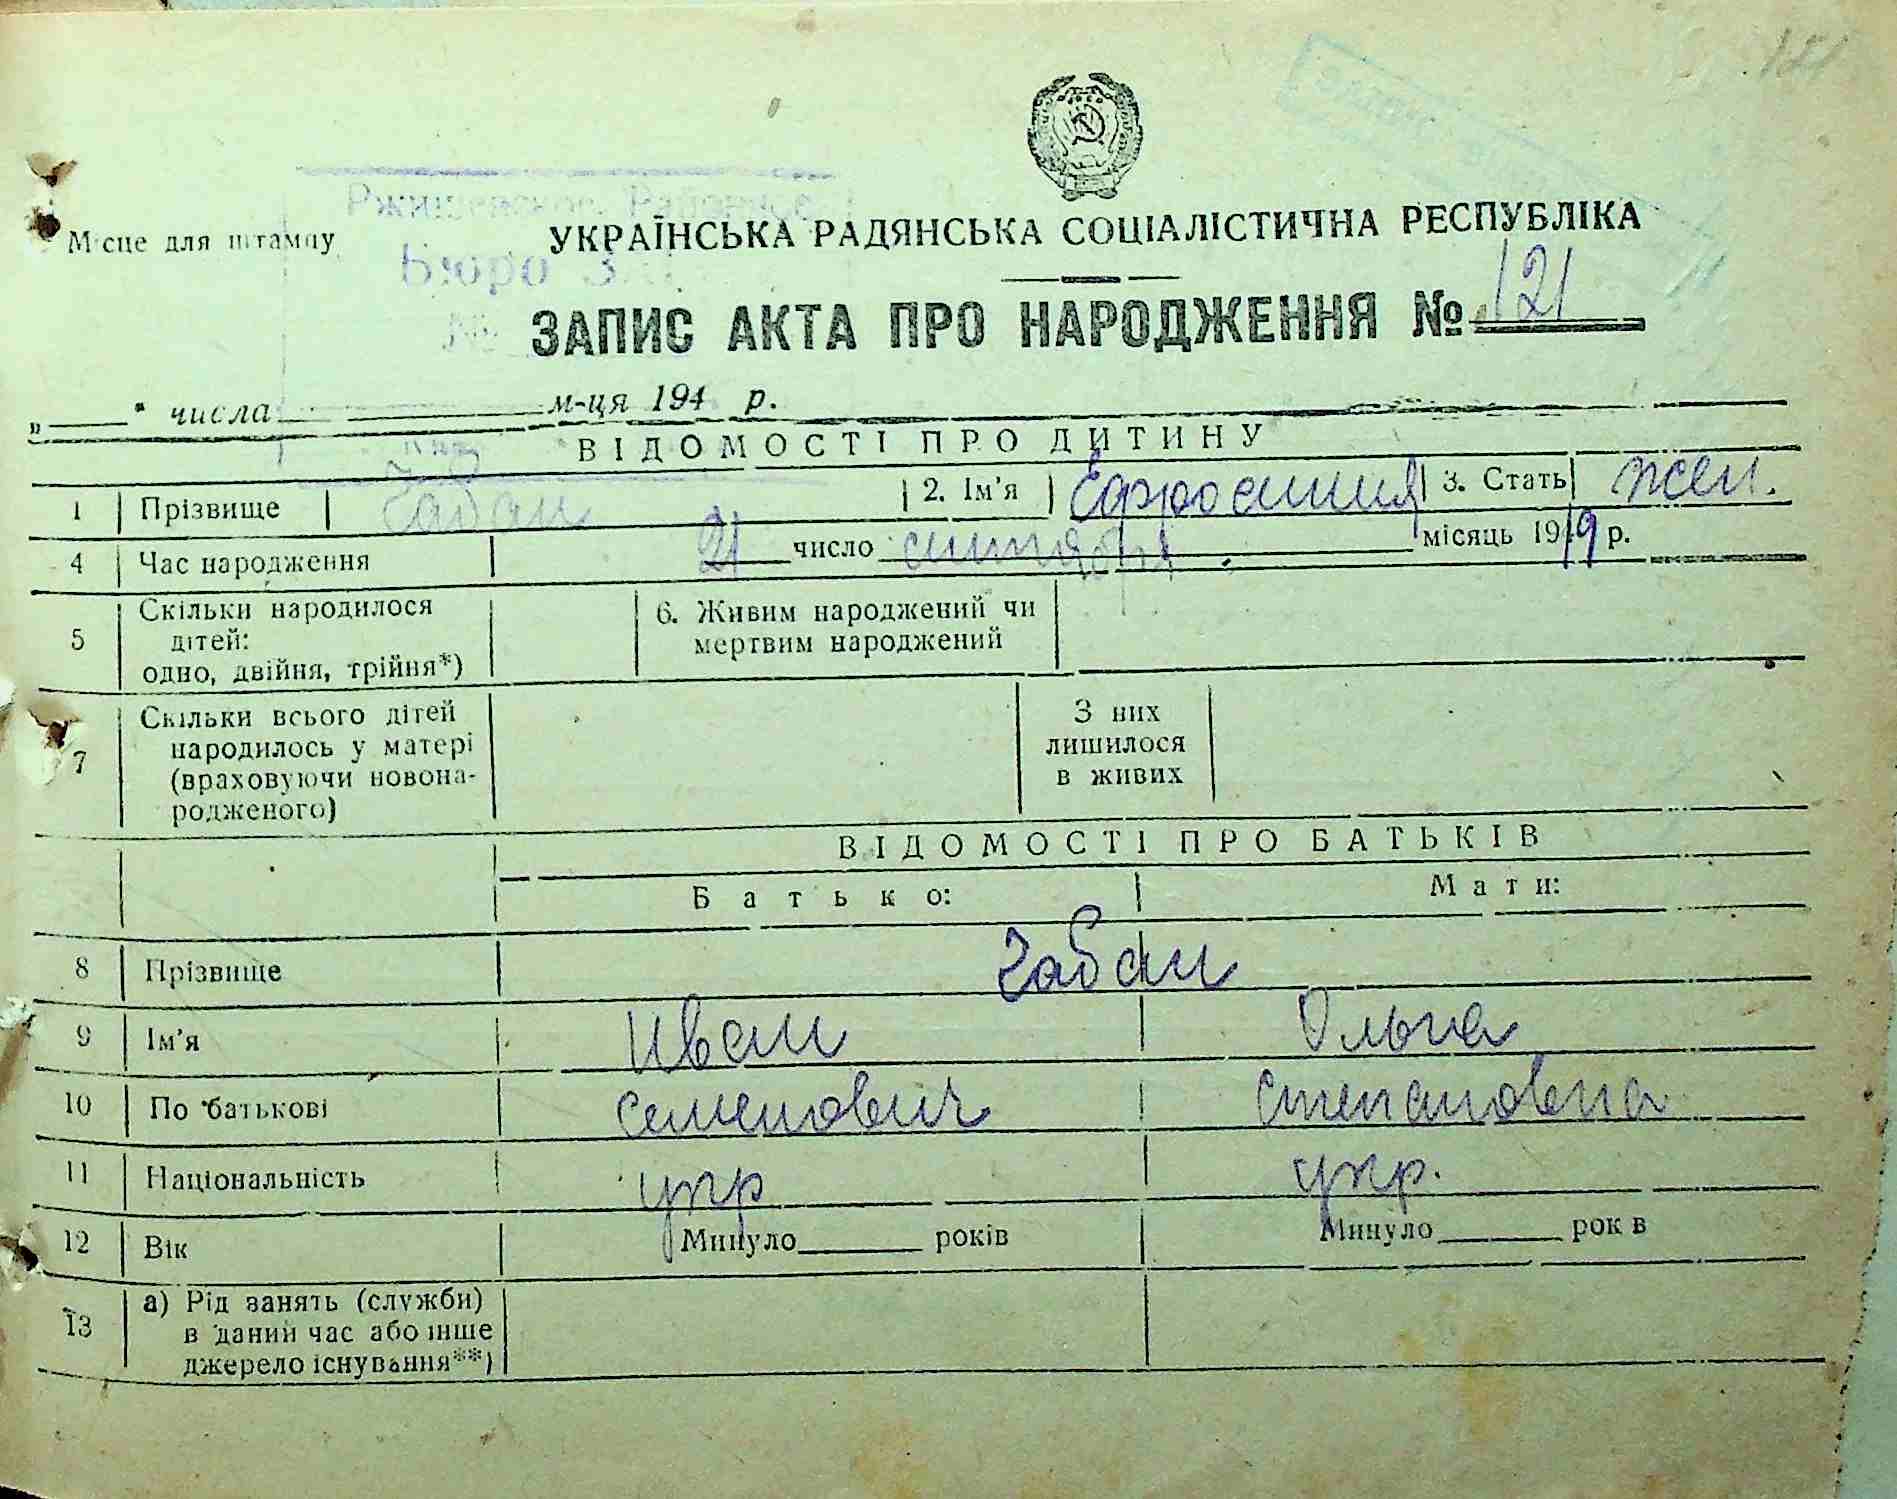 121
Ржищевское Районное
Місце для штампу
УКРАЇНСЬКА РАДЯНСЬКА СОЦІАЛІСТИЧНА РЕСПУБЛІКА
Бюро
№
ЗАПИС АКТА ПРО НАРОДЖЕННЯ № 121
„ " числа м-ця 194 р.
ВІДОМОСТІ ПРО ДИТИНУ
1 Прізвище Чабан 2. Ім'я Ефросиния 3. Стать жен.
4 Час народження 21 число сентября місяць 1919 р.
5 Скільки народилося дітей: одно, двійня, трійня*) 6. Живим народжений чи мертвим народжений
7 Скільки всього дітей народилось у матері (враховуючи новонародженого) З них лишилося в живих
ВІДОМОСТІ ПРО БАТЬКІВ
Батько: Мати:
8 Прізвище Чабан
9 Ім'я Иван Ольга
10 По батькові Семенович Степановна
11 Національність укр укр.
12 Вік Минуло років Минуло рок в
13 а) Рід занять (служби) в даний час або інше джерело існування**)